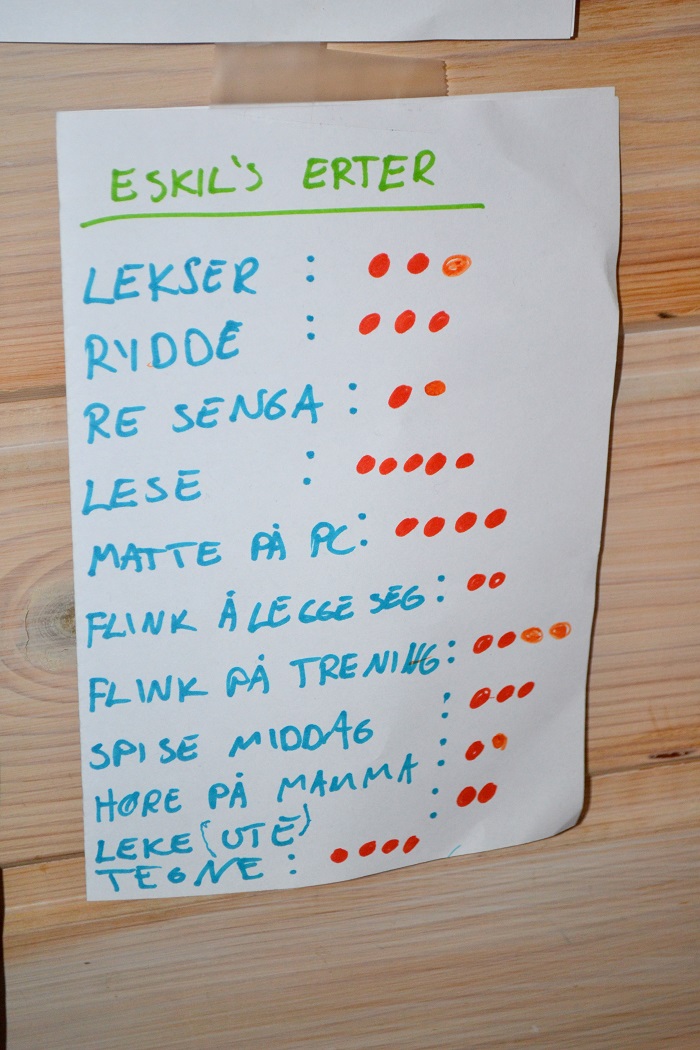 ESKIL'S ERTER
LEKSER :
RYDDE :
RE SENGA :
LESE :
MATTE PÅ PC :
FLINK Å LEGGE SEG :
FLINK PÅ TRENING :
SPISE MIDDAG :
HØRE PÅ MAMMA :
LEKE (UTE) :
TEGNE :